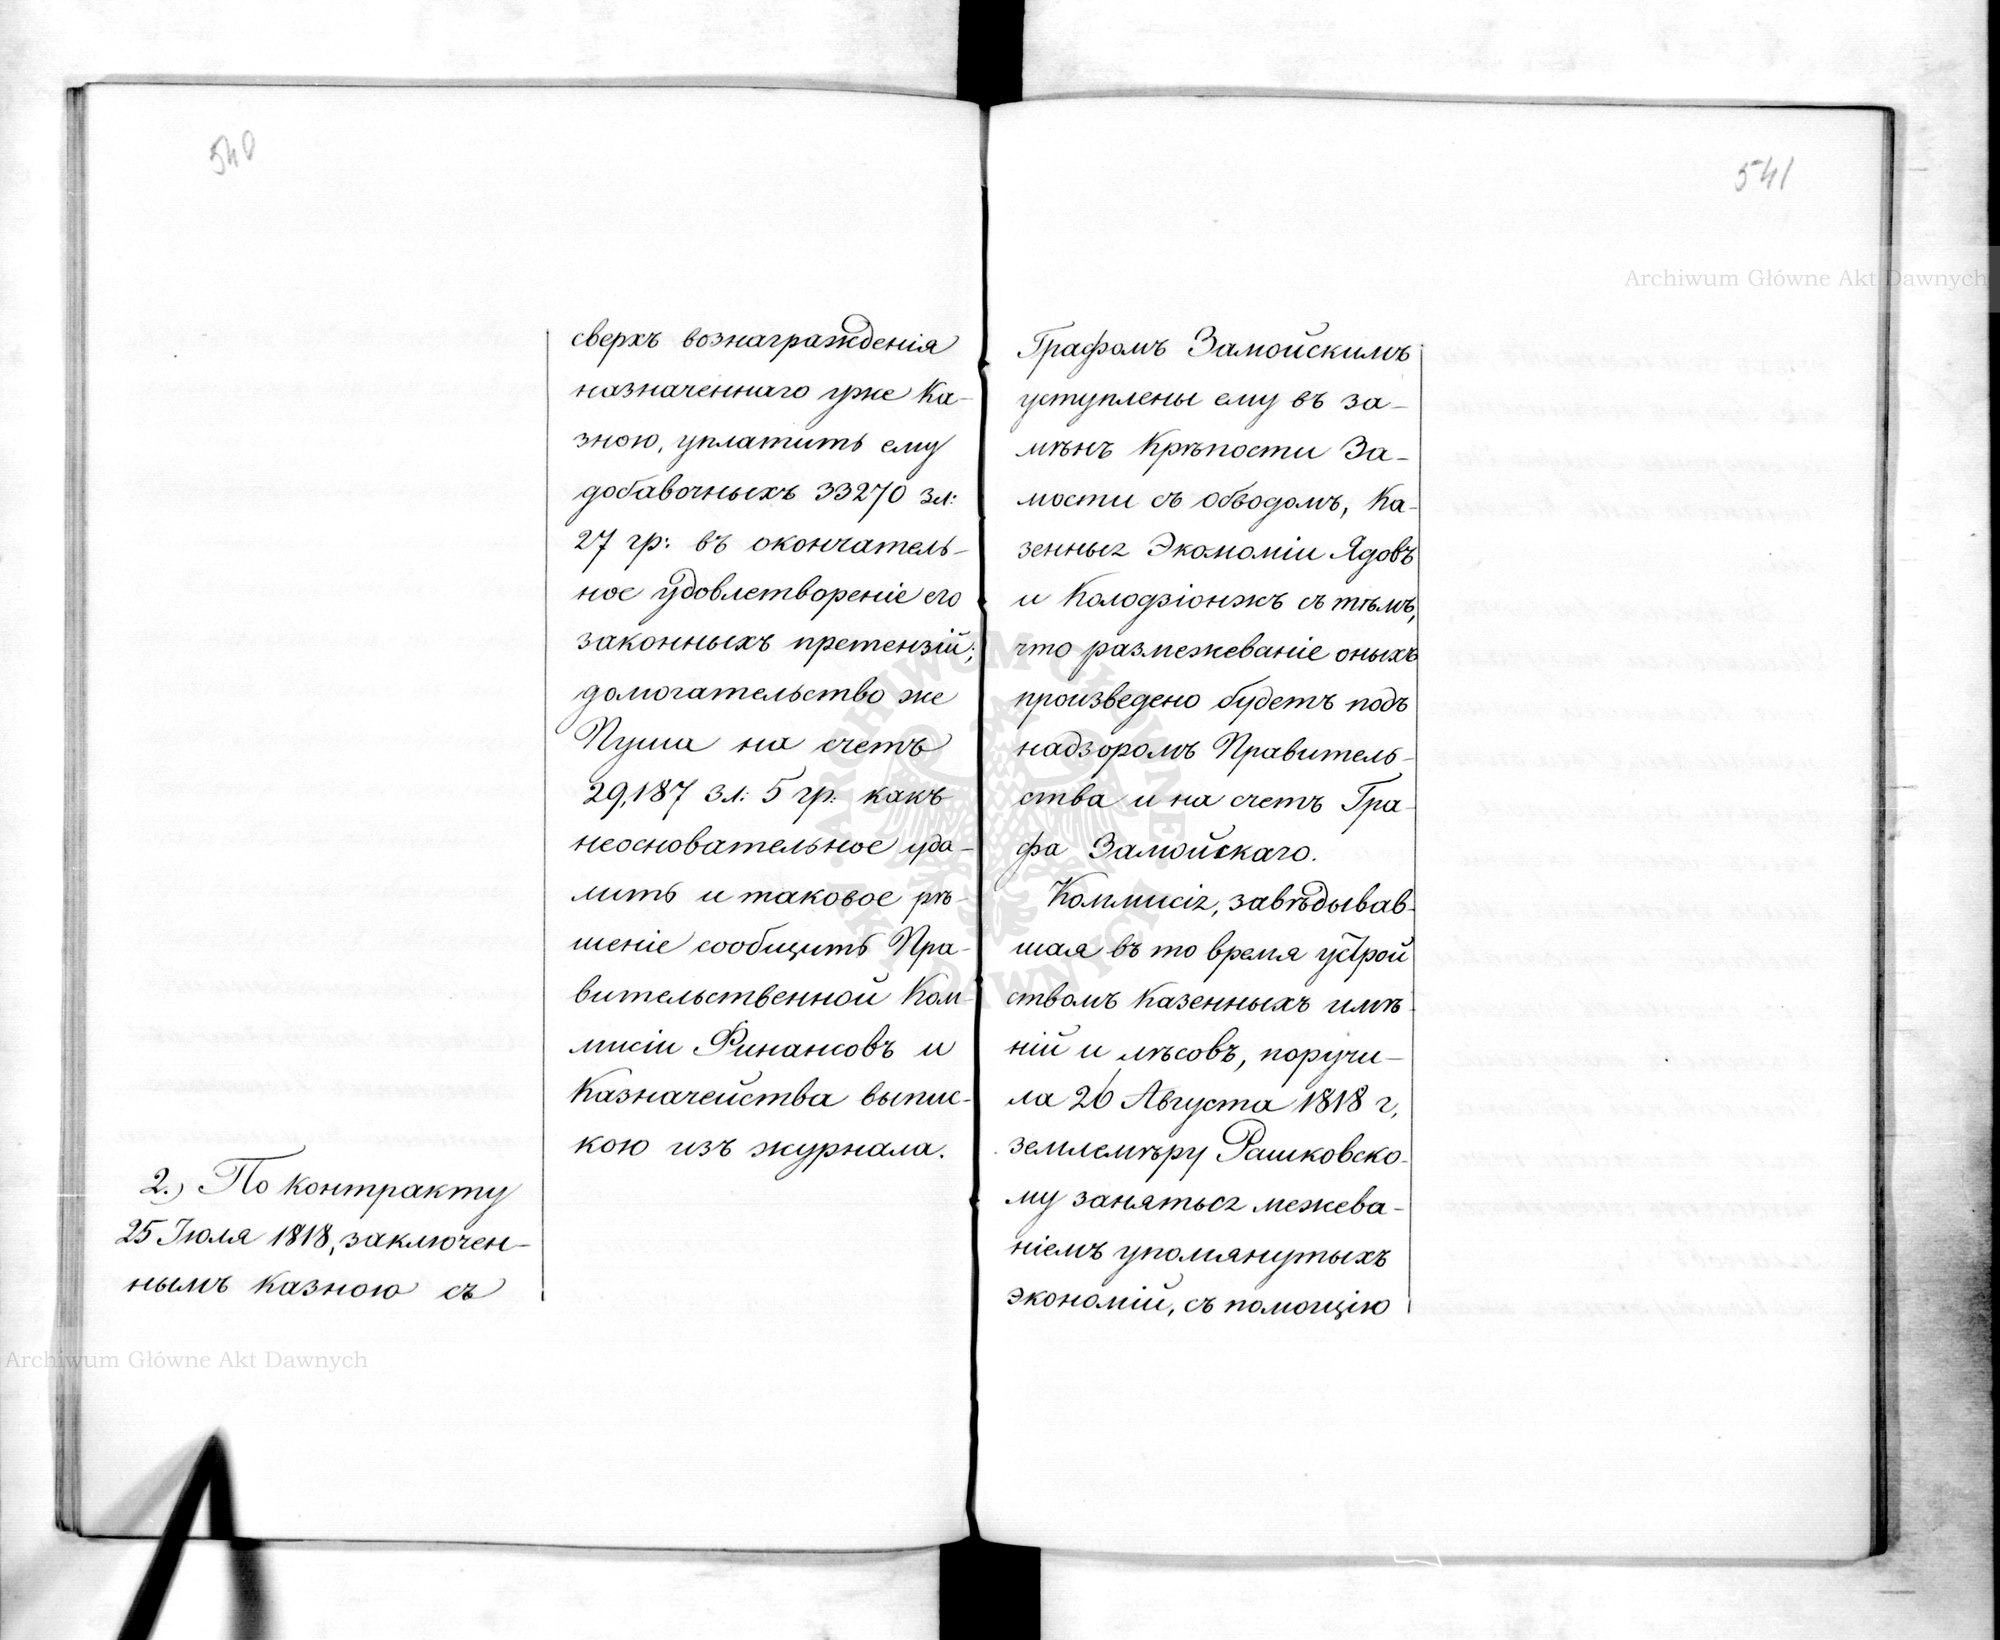 540
сверхъ вознагражденія
назначеннаго уже Ка-
зною, уплатить ему
добавочныхъ 33270 зл:
27 гр: въ окончатель-
ное удовлетвореніе его
законныхъ претензій;
домогательство же
Пуша на счетъ
29,187 зл: 5 гр: какъ
неосновательное уда-
лить и таковое рѣ-
шеніе сообщить Пра-
вительственной Ком-
мисіи Финансовъ и
Казначейства выпис-
кою изъ журнала.
2.) По контракту
25 Іюля 1818, заключен-
нымъ Казною съ
541
Графомъ Замойскимъ
уступлены ему въ за-
мѣнъ Крѣпости За-
мости съ обводомъ, Ка-
зенныя Экономіи Ядовъ
и Колодзіонжъ съ тѣмъ,
что размежеваніе оныхъ
произведено будетъ подъ
надзоромъ Правитель-
ства и на счетъ Гра-
фа Замойскаго.
Коммисія, завѣдывав-
шая въ то время устрой
ствомъ Казенныхъ имѣ-
ній и лѣсовъ, поручи-
ла 26 Августа 1818 г,
землемѣру Рашковско-
му заняться межева-
ніемъ упомянутыхъ
экономій, съ помощію
Archiwum Główne Akt Dawnych
Archiwum Główne Akt Dawnych